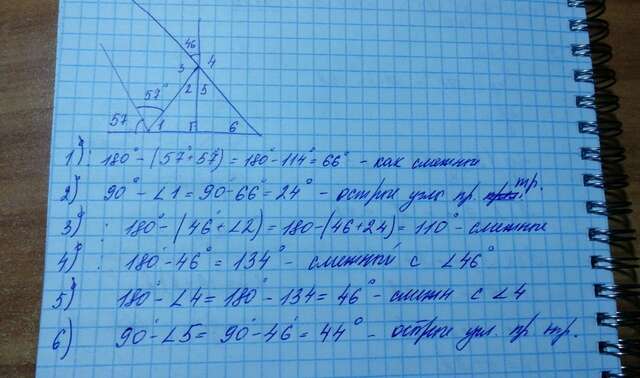 46
3 4
57°
2 5
57 1 6
1) : 180° - (57° + 57°) = 180° - 114° = 66° - как смежные
2) 90° - ∠1 = 90° - 66° = 24° - острые углы пр. тр.
3) : 180° - (46° + ∠2) = 180 - (46 + 24) = 110° - смежные
4) : 180° - 46° = 134° - смежный с ∠46°
5) 180° - ∠4 = 180° - 134 = 46° - смежн с ∠4
6) 90° - ∠5 = 90° - 46° = 44° - острые угл. пр. тр.